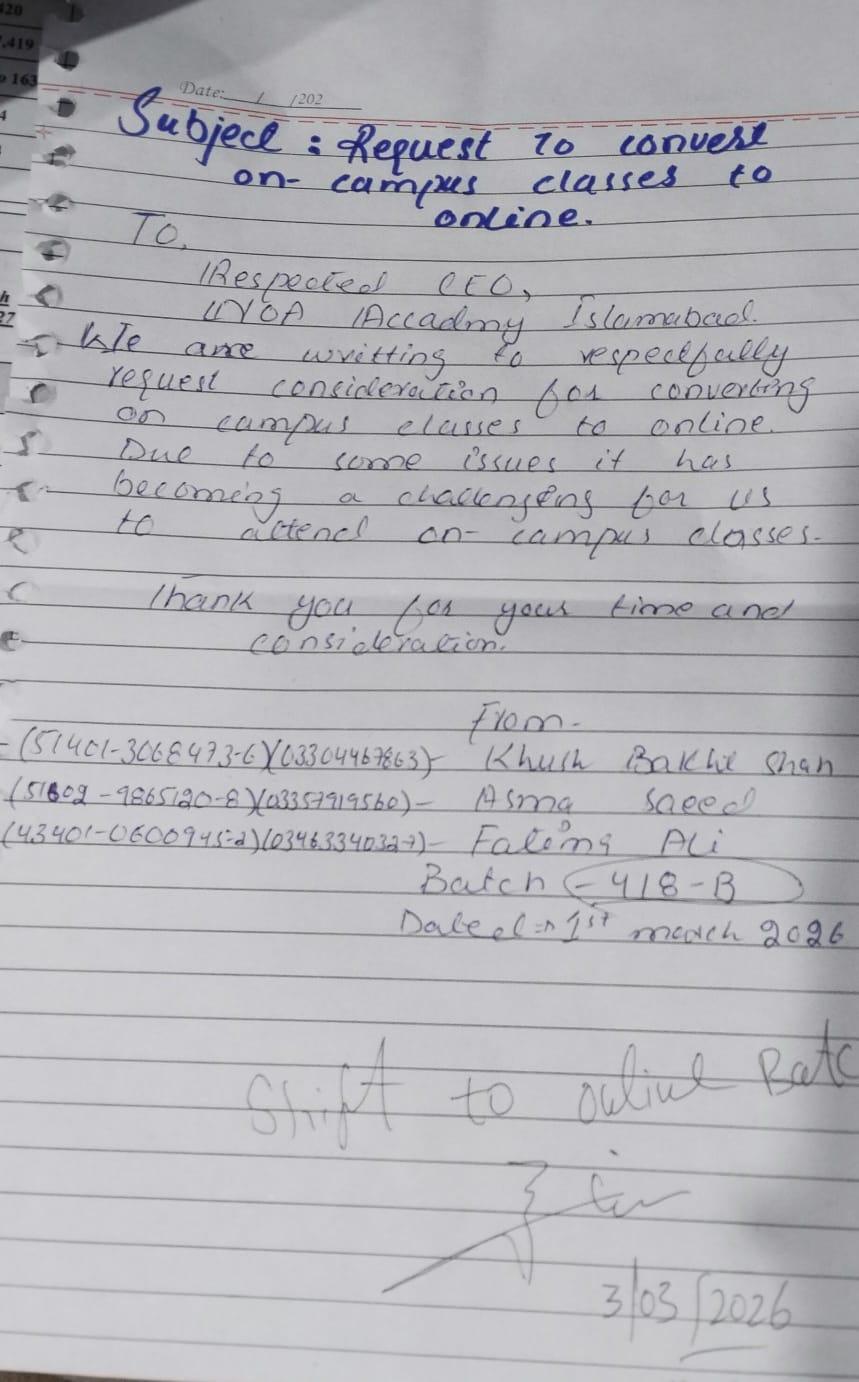 420
,419
163
4
Date: / /202
Subject : Request to convert
on- campus classes to
online.
To,
Respected CEO,
NOA Accadmy Islamabad.
We are writting to respectfully
request consideration for converting
on campus classes to online.
Due to some issues it has
becoming a challenging for us
to attend on- campus classes.
Thank you for your time and
consideration.
From-
-(51401-3068473-6)(03304467863)- Khush Bakht Shah
(51602-9865120-8)(03357919560)- Asma Saeed
(43401-0600945-2)(03463340327)- Fatima Ali
Batch - 418-B
Dated = 1st march 2026
Shift to online Batc
3/03/2026